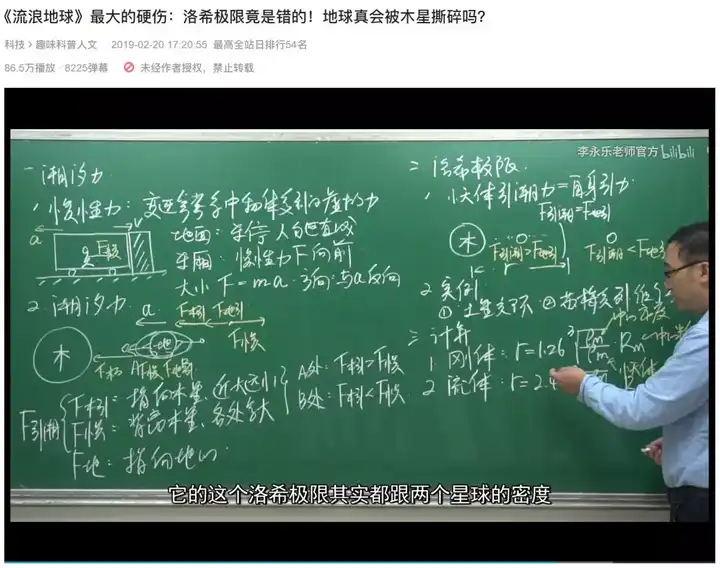 《流浪地球》最大的硬伤：洛希极限竟是错的！地球真会被木星撕碎吗？
科技 > 趣味科普人文 2019-02-20 17:20:55 最高全站日排行54名
86.5万播放 · 8225弹幕 未经作者授权，禁止转载
李永乐老师官方 bilibili
一 潮汐力
1 惯性力：变速参考系中物体受到的虚拟力
a F惯
地面：车停 人向
车厢：惯性力F向前
大小 F=ma 方向：与a反向
2. 潮汐力
a F木引 F地引
F惯
木 F地
F引潮
F木引：指向木星，近大远小
F惯：背离木星，各处
F地：指向地心
A处：F木引>F惯
B处：F木引<F惯
二 洛希极限
1 小天体引潮力=自身引力
F引潮=F地引
木 F引潮>F地引 F引潮<F地引
2 实例
① 土星光环 ②
三 计算
1. 刚体：r=1.26 ³√ρm Rm
2 流体：r=2.4
它的这个洛希极限其实都跟两个星球的密度